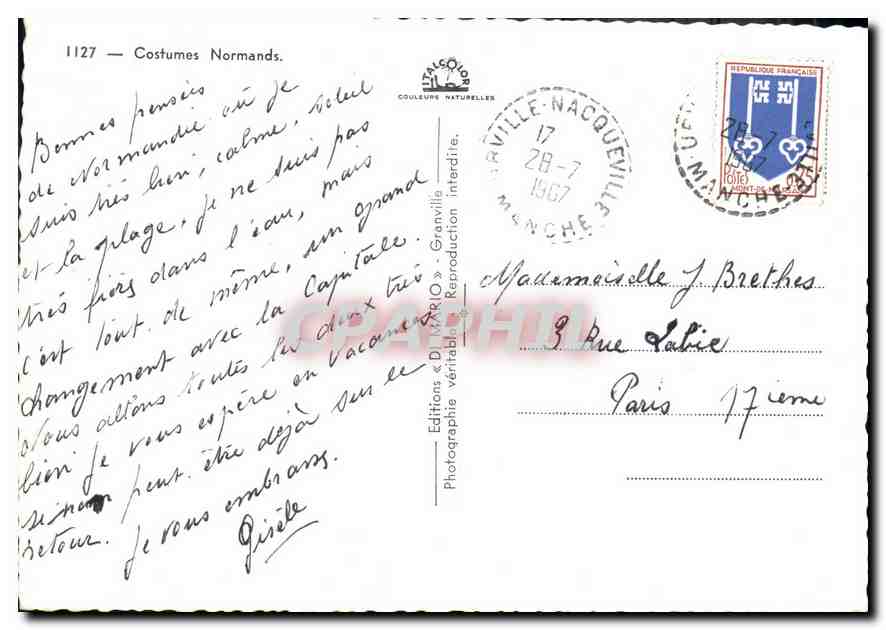 1127 — Costumes Normands.
Bonnes pensées
de Normandie où je
suis très bien, calme, soleil
et la plage, je ne suis pas
très fiers dans l'eau, mais
c'est tout de même, un grand
changement avec la Capitale.
Nous allons toutes les deux très
bien. Je vous espère en vacances
sinon peut être déjà sur le
retour. Je vous embrasse.
Gisèle
ITALCOLOR
COULEURS NATURELLES
Editions « DI MARIO » - Granville
Photographie véritable - Reproduction interdite.
RVILLE-NACQUEVILLE
17
28-7
1967
MANCHE
REPUBLIQUE FRANÇAISE
28-7
1967
MANCHE
POSTES
MONT-DE-M
Mademoiselle J Brethes
3 Rue Labie
Paris 17ieme
CPAPHIL